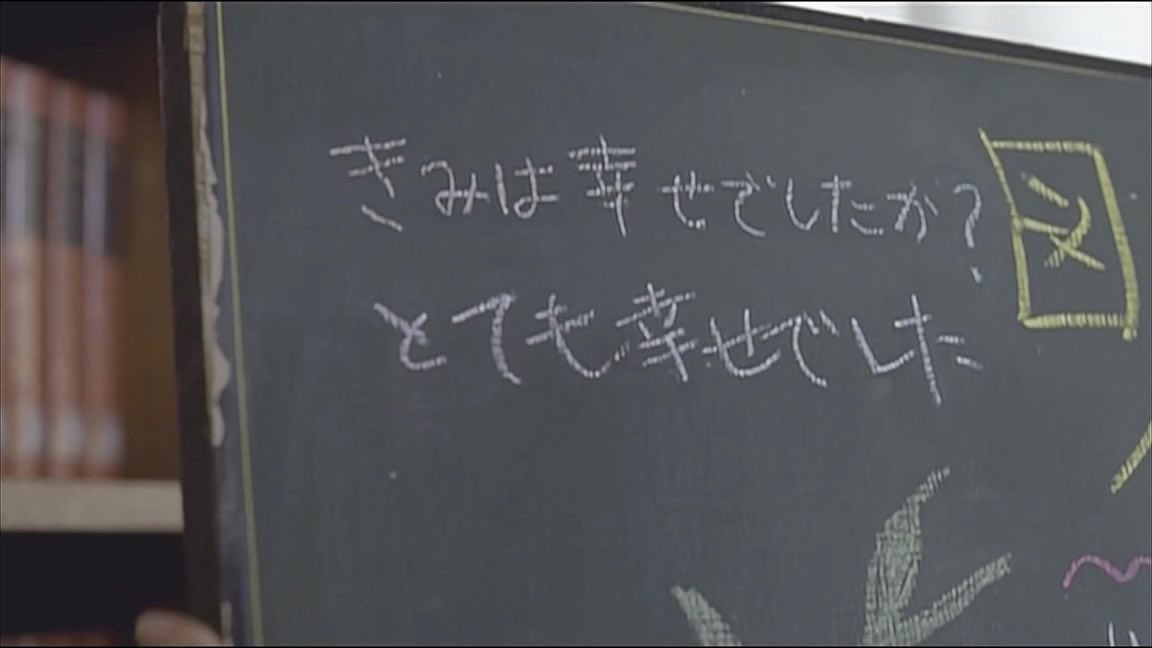 きみは幸せでしたか?
とても幸せでした
図